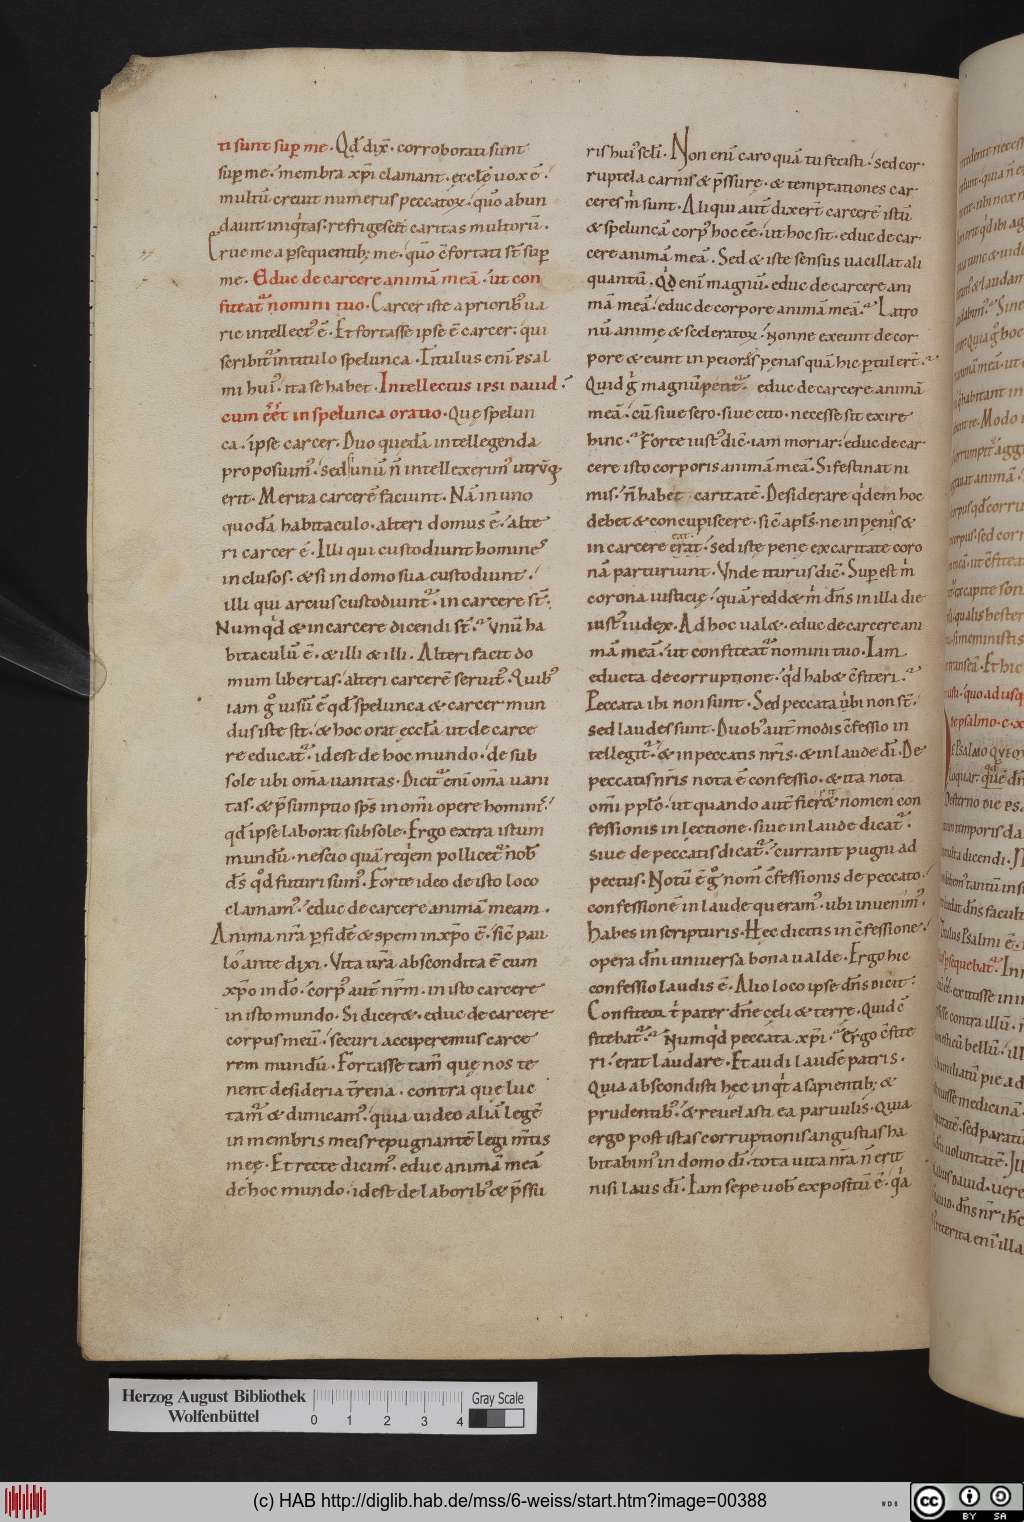 ti sunt sup̄ me. Qd̄ dix̄. corroborati sunt
sup̄ me. membra xp̄i clamant. eccl̄ę uox ē.
multū creuit numerus peccatoꝝ. quō abun
dauit iniq̇tas. refrigescet caritas multorū.
Erue me a p̄sequentibꝫ me. quō c̄fortati st̄ sup̄
me. Educ de carcere animā meā. ut con
fiteat᷑ nomini tuo. Carcer iste a priorib᷒ ua
rie intellect᷒ ē. Et fortasse ipse ē carcer. qui
scribit᷑ in titulo spelunca. Titulus eni psal
mi hui᷒. ita se habet. Intellectus ipsi dauid.
cum eēt in spelunca oratio. Quę spelun
ca. ipse carcer. Duo quedā intellegenda
proposuim᷒. sed unū n̄ intellexerim᷒ utrūq̨
erit. Merita carcerē faciunt. Nā in uno
quodā habitaculo. alteri domus ē. alte
ri carcer ē. Illi qui custodiunt homines
inclusos. & si in domo sua custodiunt.
illi qui arcius custodiunt᷑. in carcere st̄.
Numq̇d & in carcere dicendi st̄. Vnū ha
bitaculū ē. & illi & illi. Alteri facit do
mum libertas. alteri carcerē seruit᷒. Quib᷒
iam g̊ uisū ē qd̄ spelunca & carcer mun
dus iste sit. & hoc orat eccl̄a ut de carce
re educat᷑. id est de hoc mundo. de sub
sole ubi om̄a uanitas. Dicit᷑ eni om̄a uani
tas. & p̄sumptio sp̄s in om̄i opere homini᷒.
qd̄ ipse laborat sub sole. Ergo extra istum
mundū. nescio quā req̇em pollicet᷑ nob̄
d̄s q̊d futuri sum᷒. Forte ideo de isto loco
clamam᷒. educ de carcere animā meam.
Anima nr̄a p̄ fidē & spem in xp̄o ē. sic̄ pau
lo ante dixi. Vita ur̄a abscondita ē cum
xp̄o in dō. corp᷒ aut̄ nr̄m. in isto carcere
in isto mundo. Si diceret. educ de carcere
corpus meū. securi acciperemus carce
rem mundū. Fortasse tam̄ que nos te
nent desideria t̄rena. contra que luc
tam᷑ & dimicam᷒. quia uideo aliā legē
in membris meis repugnantē legi m̄tis
meę. Et recte dicim᷒. educ animā meā
de hoc mundo. id est de laborib᷒ & p̄ssu
ris hui᷒ scli. Non eni caro quā tu fecisti. sed cor
ruptela carnis & p̄ssurę. & temptationes car
ceres m̊ sunt. Aliqui aut̄ dixer̄t carcerē istū
& speluncā corp᷒ hoc eē. ut hoc sit. educ de car
cere animā meā. Sed & iste sensus uacillat ali
quantū. Q̇d eni magnū. educ de carcere ani
mā meā. educ de corpore animā meā. Latro
nū animę & sceleratoꝝ. Nonne exeunt de cor
pore & eunt in peiores penas quā hic p̄tuler̄t.
Quid g̊ magnū petit᷑. educ de carcere animā
meā. cū siue sero. siue cito. necesse sit exire
hinc. Forte iust᷒ dic̄. iam moriar. educ de car
cere isto corporis animā meā. Si festinat ni
mis. n̄ habet caritatē. Desiderare q̇dem hoc
debet & concupiscere. sic̄ apl̄s. ne in penis &
in carcere erat. sed istę penę ex caritate coro
nā parturiunt. Vnde iturus dic̄. Sup̄ est m̊
corona iusticię. quā redd& m̊ dn̄s in illa die
iust᷒ iudex. Ad hoc ual&. educ de carcere ani
mā meā. ut confiteat᷑ nomini tuo. Iam
educta de corruptione. q̇d hab& c̄fiteri.
Peccata ibi non sunt. Sed peccata ubi non st̄.
sed laudes sunt. Duob᷒ aut̄ modis c̄fessio in
tellegit᷑. & in peccatis nr̄is. & in laude dī. De
peccatis nr̄is nota ē confessio. & ita nota
om̄i pplo. ut quando aut̄ fieret nomen con
fessionis in lectione. siue in laude dicat᷑.
siue de peccatis dicat᷑. currant pugni ad
pectus. Notū ē g̊ nom̄ c̄fessionis de peccato.
confessionē in laude queram᷒. ubi inuenim᷒.
Habes in scripturis. Hec dicitis in c̄fessione.
opera dn̄i uniuersa bona ualde. Ergo hic
confessio laudis ē. Alio loco ipse dn̄s dicit.
Confiteor t̊ pater dn̄e cęli & terrę. Quid c̄
fitebat᷑. Numq̇d peccata xp̄i. Ergo c̄fite
ri. erat laudare. Et audi laudē patris.
Quia abscondisti hęc inq̇t a sapientibꝫ &
prudentib᷒. & reuelasti ea paruulis. Quia
ergo post istas corruptionis angustias ha
bitabim᷒ in domo dī. tota uita nr̄a n̄ erit
nisi laus dī. Iam sepe uob̄ expositū ē. q̇a
Herzog August Bibliothek
Wolfenbüttel
0 1 2 3 4
Gray Scale
(c) HAB http://diglib.hab.de/mss/6-weiss/start.htm?image=00388
WDB
cc BY SA